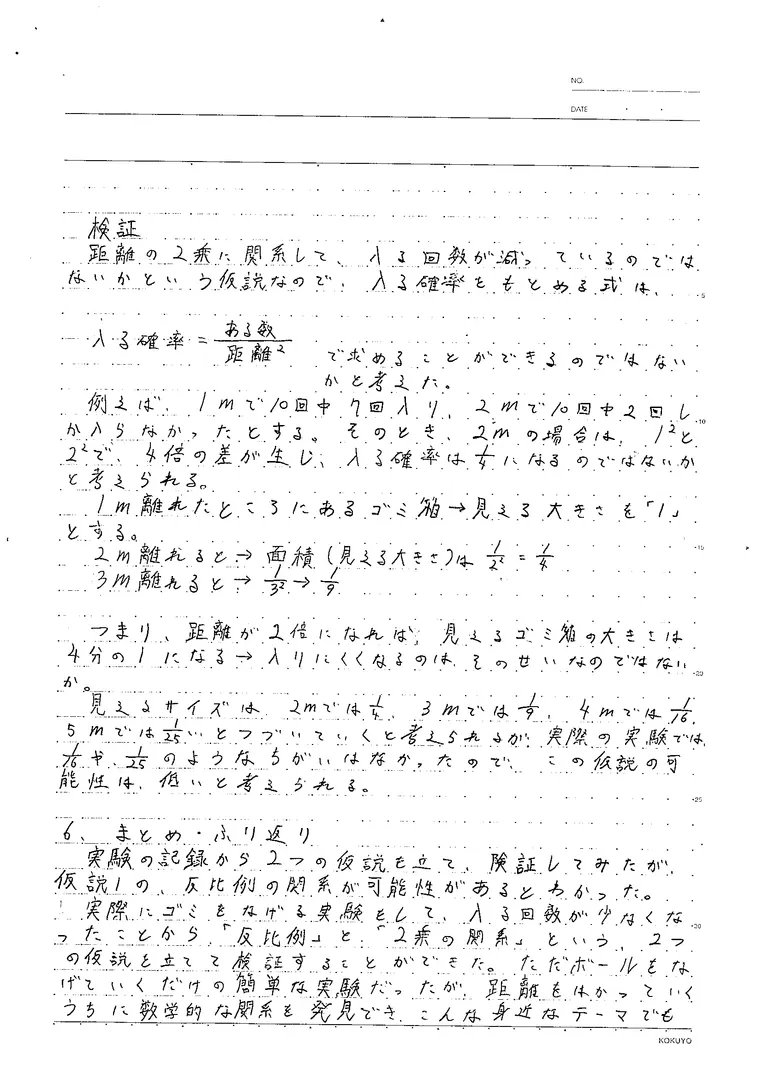 NO.
DATE
検証
距離の2乗に関係して、入る回数が減っているのでは
ないかという仮説なので、入る確率をもとめる式は、
5
入る確率 = ある数/距離²
で求めることができるのではない
かと考えた。
例えば、1mで10回中7回入り、2mで10回中2回し
10
か入らなかったとする。そのとき、2mの場合は、1²と
2²で、4倍の差が生じ、入る確率は1/4になるのではないか
と考えられる。
1m離れたところにあるゴミ箱→見える大きさを「1」
とする。
15
2m離れると→面積(見える大きさ)は 1/2² = 1/4
3m離れると→ 1/3² → 1/9
つまり、距離が2倍になれば、見えるゴミ箱の大きさは
4分の1になる→入りにくくなるのは、そのせいなのではない
20
か。
見えるサイズは、2mでは1/4、3mでは1/9、4mでは1/16、
5mでは1/25、とつづいていくと考えられるが、実際の実験では、
1/16や、1/25のようなちがいはなかったので、この仮説の可
能性は、低いと考えられる。
25
6、まとめ・ふり返り
実験の記録から2つの仮説を立て、険証してみたが、
仮説1の、反比例の関係が可能性があるとわかった。
実際にゴミをなげる実験をして、入る回数が少なくな
30
ったことから、「反比例」と、「2乗の関係」という、2つ
の仮説を立てて検証することができた。ただボールをな
げていくだけの簡単な実験だったが、距離をはかっていく
うちに数学的な関係を発見でき、こんな身近なテーマでも
KOKUYO